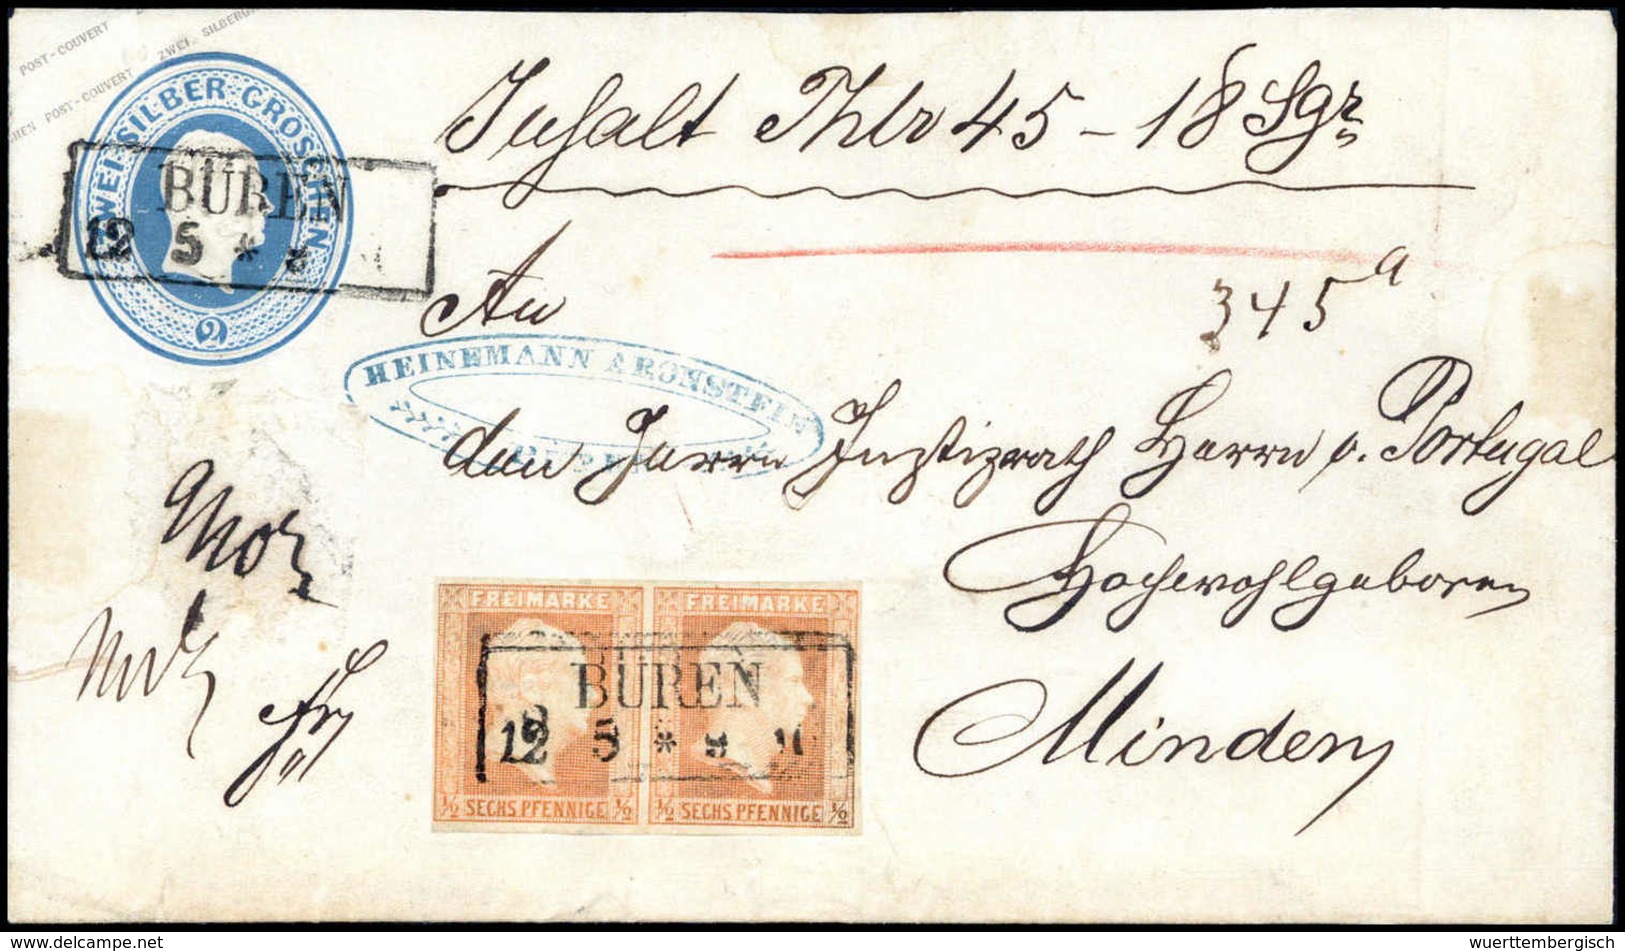 POST-COUVERT ZWEI SILBERG
POST-COUVERT
ZWEI SILBER-GROSCHEN
2
BÜREN
12 5 * 8
Inhalt Thlr 45 - 18 Sgr
An
345 a
HEINEMANN ARONSTEIN
den Herrn Justizrath Herrn v. Portugal
Hochwohlgeboren
Minden
FREIMARKE FREIMARKE
BÜREN
12 5 * 8
½ SECHS PFENNIGE ½ ½ SECHS PFENNIGE ½
www.wuerttembergisch
www.delcampe.net